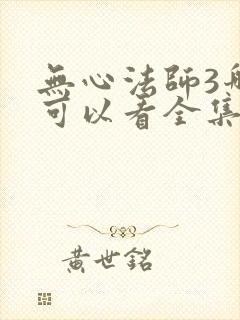 無心法師3
可以看全集
黃世銘